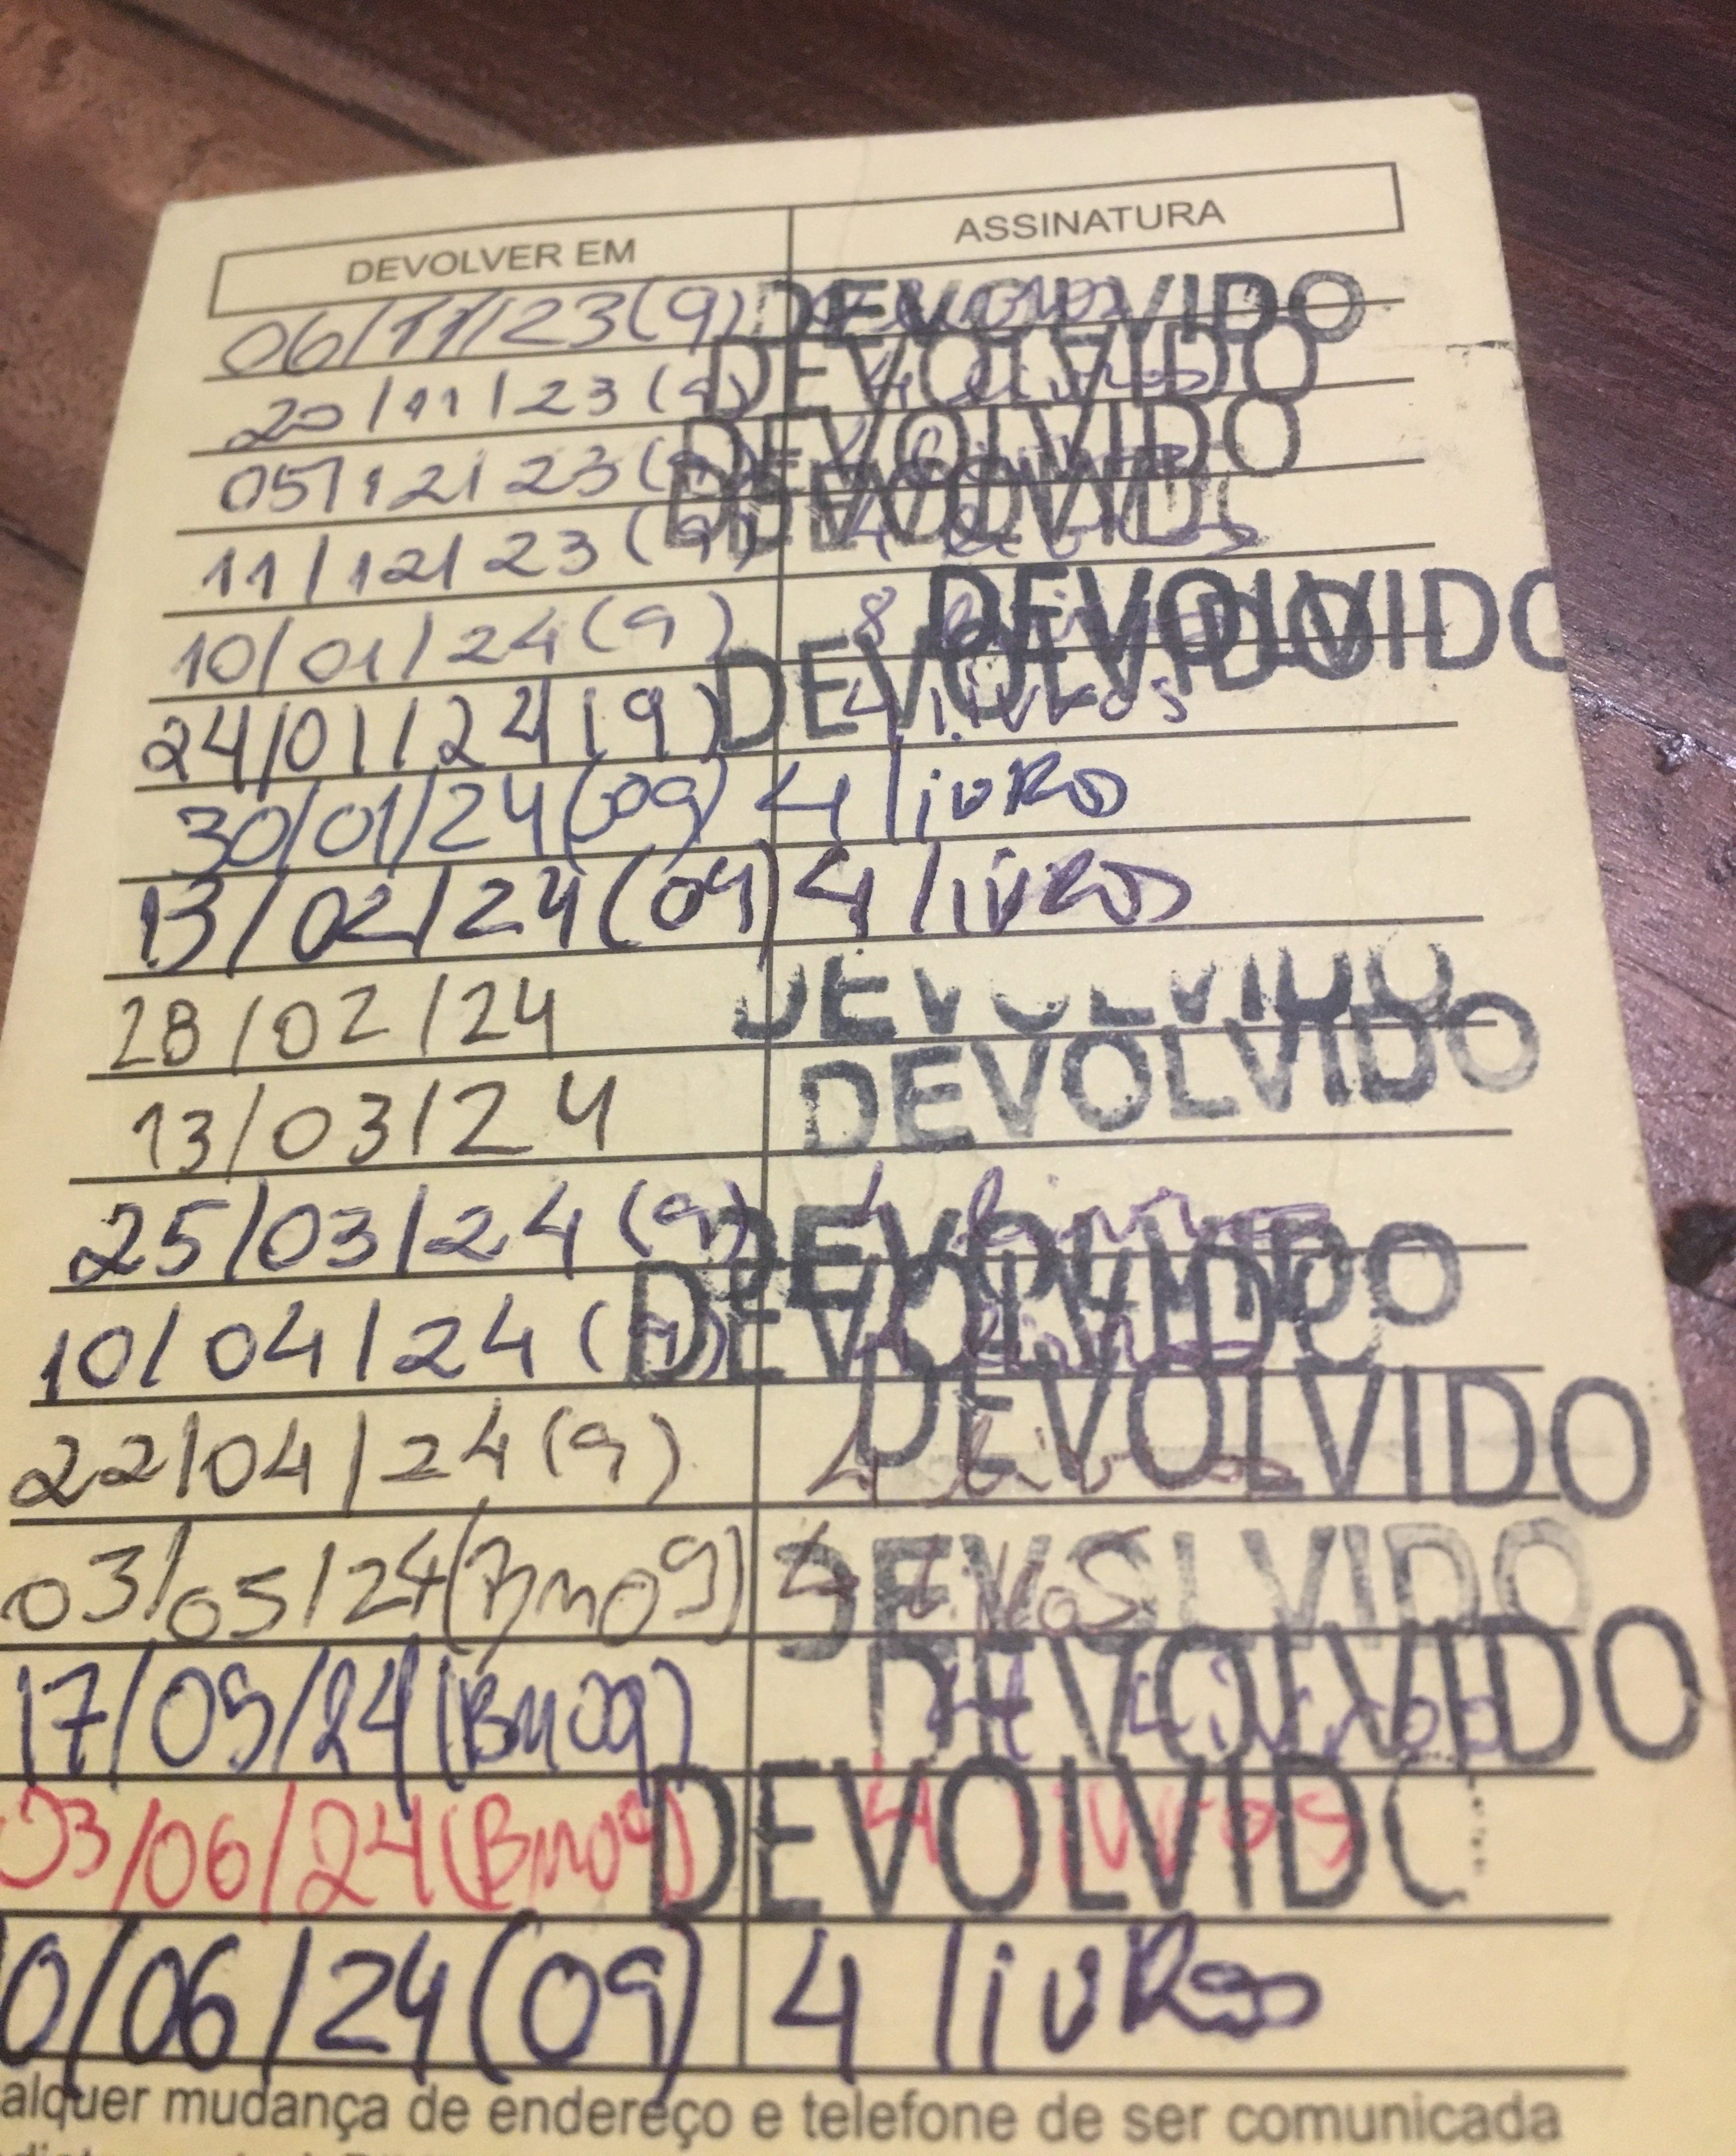 DEVOLVER EM ASSINATURA
06/11/23(9) DEVOLVIDO
20/11/23(9) 4 livros DEVOLVIDO
05/12/23(9) 4 livros DEVOLVIDO
11/12/23(9) 4 livros DEVOLVIDO
10/01/24(9) 8 livros DEVOLVIDO
24/01/24(9) 4 livros DEVOLVIDO
30/01/24(09) 4 livRo
13/02/24(09) 4 livRos
28/02/24 DEVOLVIDO
13/03/24 DEVOLVIDO
25/03/24(9) 4 livros DEVOLVIDO
10/04/24(9) 4 livros DEVOLVIDO
22/04/24(9) 4 livros DEVOLVIDO
03/05/24(Bm09) 4 livros DEVOLVIDO
17/05/24(Bm09) 4 livros DEVOLVIDO
03/06/24(Bm09) 4 livros DEVOLVIDO
0/06/24(09) 4 livRos
alquer mudança de endereço e telefone de ser comunicada